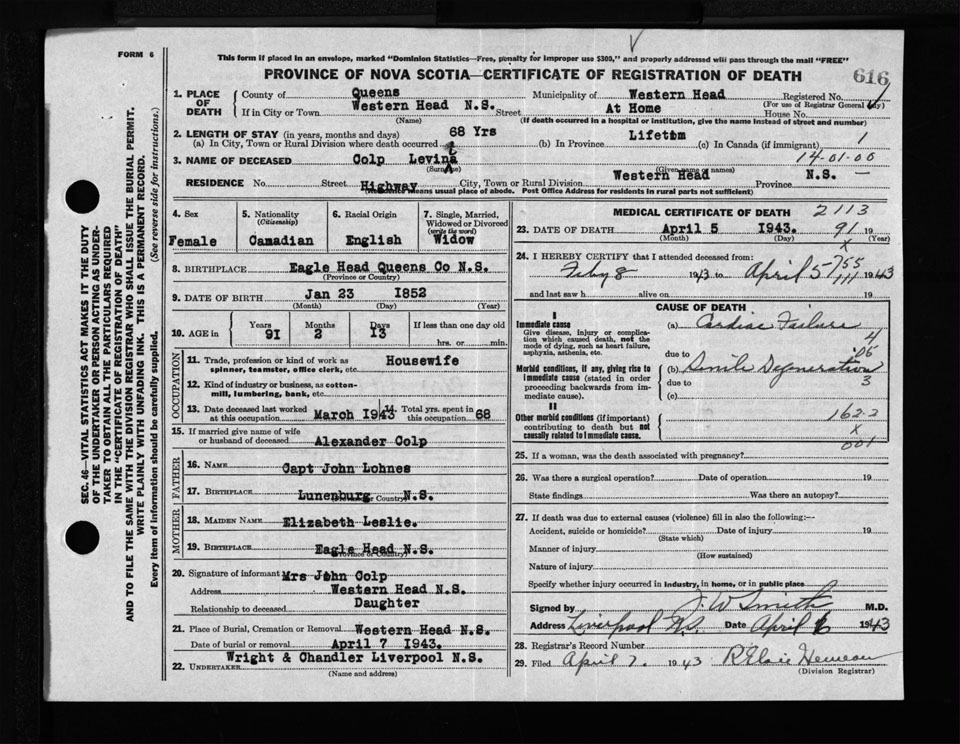 FORM 6
This form if placed in an envelope, marked "Dominion Statistics—Free, penalty for improper use $300," and properly addressed will pass through the mail "FREE"
PROVINCE OF NOVA SCOTIA—CERTIFICATE OF REGISTRATION OF DEATH
616
SEC. 46—VITAL STATISTICS ACT MAKES IT THE DUTY
OF THE UNDERTAKER OR PERSON ACTING AS UNDER-
TAKER TO OBTAIN ALL THE PARTICULARS REQUIRED
IN THE "CERTIFICATE OF REGISTRATION OF DEATH"
AND TO FILE THE SAME WITH THE DIVISION REGISTRAR WHO SHALL ISSUE THE BURIAL PERMIT.
WRITE PLAINLY WITH UNFADING INK. THIS IS A PERMANENT RECORD.
Every item of information should be carefully supplied. (See reverse side for instructions.)
1. PLACE OF DEATH
County of Queens Municipality of Western Head Registered No.
(For use of Registrar General only)
If in City or Town Western Head N.S. Street At Home House No.
(Name) (If death occurred in a hospital or institution, give the name instead of street and number)
2. LENGTH OF STAY (in years, months and days)
(a) In City, Town or Rural Division where death occurred 68 Yrs (b) In Province Lifetim (c) In Canada (if immigrant) 1
14-01-00
3. NAME OF DECEASED Colp Levina
(Surname) (Given name or names)
RESIDENCE No. Street Highway City, Town or Rural Division Western Head Province N.S. —
(Residence means usual place of abode. Post Office Address for residents in rural parts not sufficient)
4. Sex
Female
5. Nationality
(Citizenship)
Canadian
6. Racial Origin
English
7. Single, Married,
Widowed or Divorced
(write the word)
Widow
8. BIRTHPLACE Eagle Head Queens Co N.S.
(Province or Country)
9. DATE OF BIRTH Jan 23 1852
(Month) (Day) (Year)
10. AGE in
Years 91
Months 2
Days 13
If less than one day old
hrs. or min.
OCCUPATION
11. Trade, profession or kind of work as
spinner, teamster, office clerk, etc. Housewife
12. Kind of industry or business, as cotton-
mill, lumbering, bank, etc.
13. Date deceased last worked
at this occupation March 1943
14. Total yrs. spent in
this occupation 68
15. If married give name of wife
or husband of deceased Alexander Colp
FATHER
16. NAME Capt John Lohnes
17. BIRTHPLACE Lunenburg N.S.
(Province or Country)
MOTHER
18. MAIDEN NAME Elizabeth Leslie.
19. BIRTHPLACE Eagle Head N.S.
(Province or Country)
20. Signature of informant Mrs John Colp
Address Western Head N.S.
Relationship to deceased Daughter
21. Place of Burial, Cremation or Removal Western Head N.S.
Date of burial or removal April 7 1943.
22. UNDERTAKER Wright & Chandler Liverpool N.S.
(Name and address)
MEDICAL CERTIFICATE OF DEATH 2113
23. DATE OF DEATH April 5 1943. 91 19
(Month) (Day) (Year)
X
24. I HEREBY CERTIFY that I attended deceased from:
Feby 8 1943 to April 5 755 1943
and last saw h alive on 111 19
CAUSE OF DEATH
I
Immediate cause
Give disease, injury or complica-
tion which caused death, not the
mode of dying, such as heart failure,
asphyxia, asthenia, etc.
(a) Cardiac Failure
4
due to
06
Morbid conditions, if any, giving rise to
immediate cause (stated in order
proceeding backwards from im-
mediate cause).
(b) Senile Degeneration
due to 3
(c)
II
Other morbid conditions (if important)
contributing to death but not
causally related to immediate cause.
162-2
X
001
25. If a woman, was the death associated with pregnancy?
26. Was there a surgical operation? Date of operation 19
State findings Was there an autopsy?
27. If death was due to external causes (violence) fill in also the following:—
Accident, suicide or homicide? Date of injury 19
(State which)
Manner of injury
(How sustained)
Nature of injury
Specify whether injury occurred in industry, in home, or in public place
Signed by J. W. Smith M.D.
Address Liverpool N.S. Date April 6 1943
28. Registrar's Record Number
29. Filed April 7. 1943
(Division Registrar)